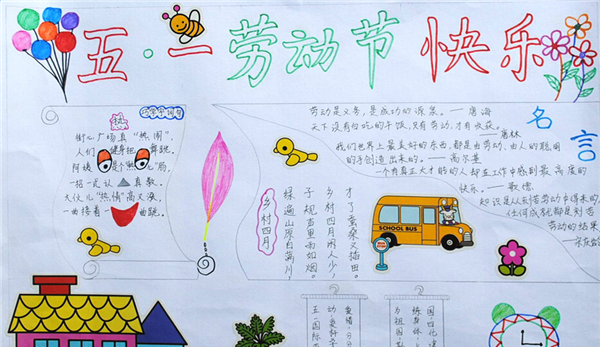 五·一劳动节快乐
热
街心广场真“热闹”,
人们 健身把 舞跳。
阿姨 是个“热心”肠,
一招一式认真教。
大伙儿“热情”高又涨,
一曲接着一曲跳。
乡村四月
绿遍山原白满川,
子规声里雨如烟。
乡村四月闲人少,
才了蚕桑又插田。
SCHOOL BUS
BUS STOP
名言
劳动是义务,是成功的源泉。——
天下没有白吃的干饭,只有劳动,才有收获。
我们世界上最美好的东西,都是由劳动,由人的聪明
的手创造出来的。——高尔基
一个有真正大才能的人却在工作中感到最高度的
快乐。——歌德
知识是从劳动中得来的,
任何成就都是刻苦
劳动的结果